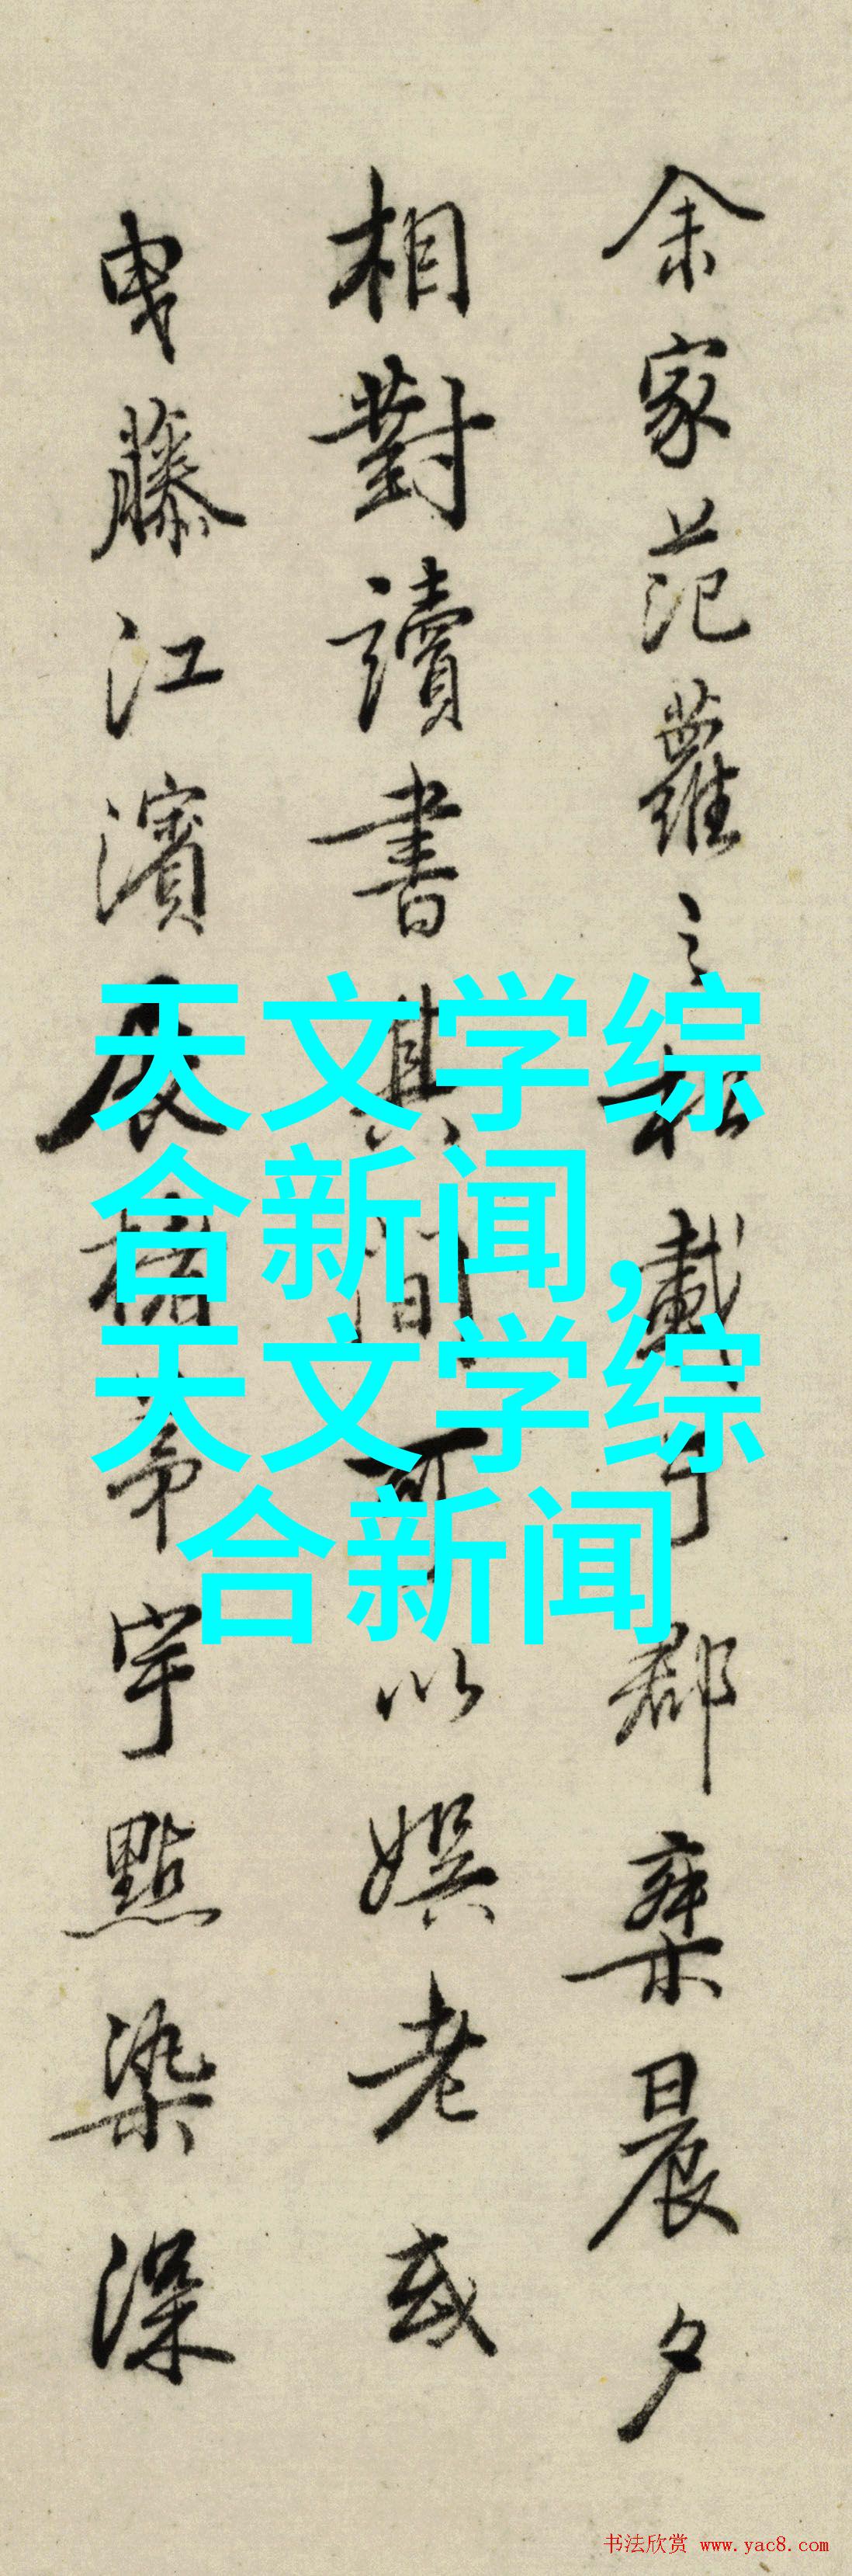 余家范蘿之
郡棄晨夕
相對讀書其間可以娱老或
曳藤江濱展楮
宇點染深
天文学综
合新闻,
天文学综
合新闻
书法欣赏 www.yac8.com